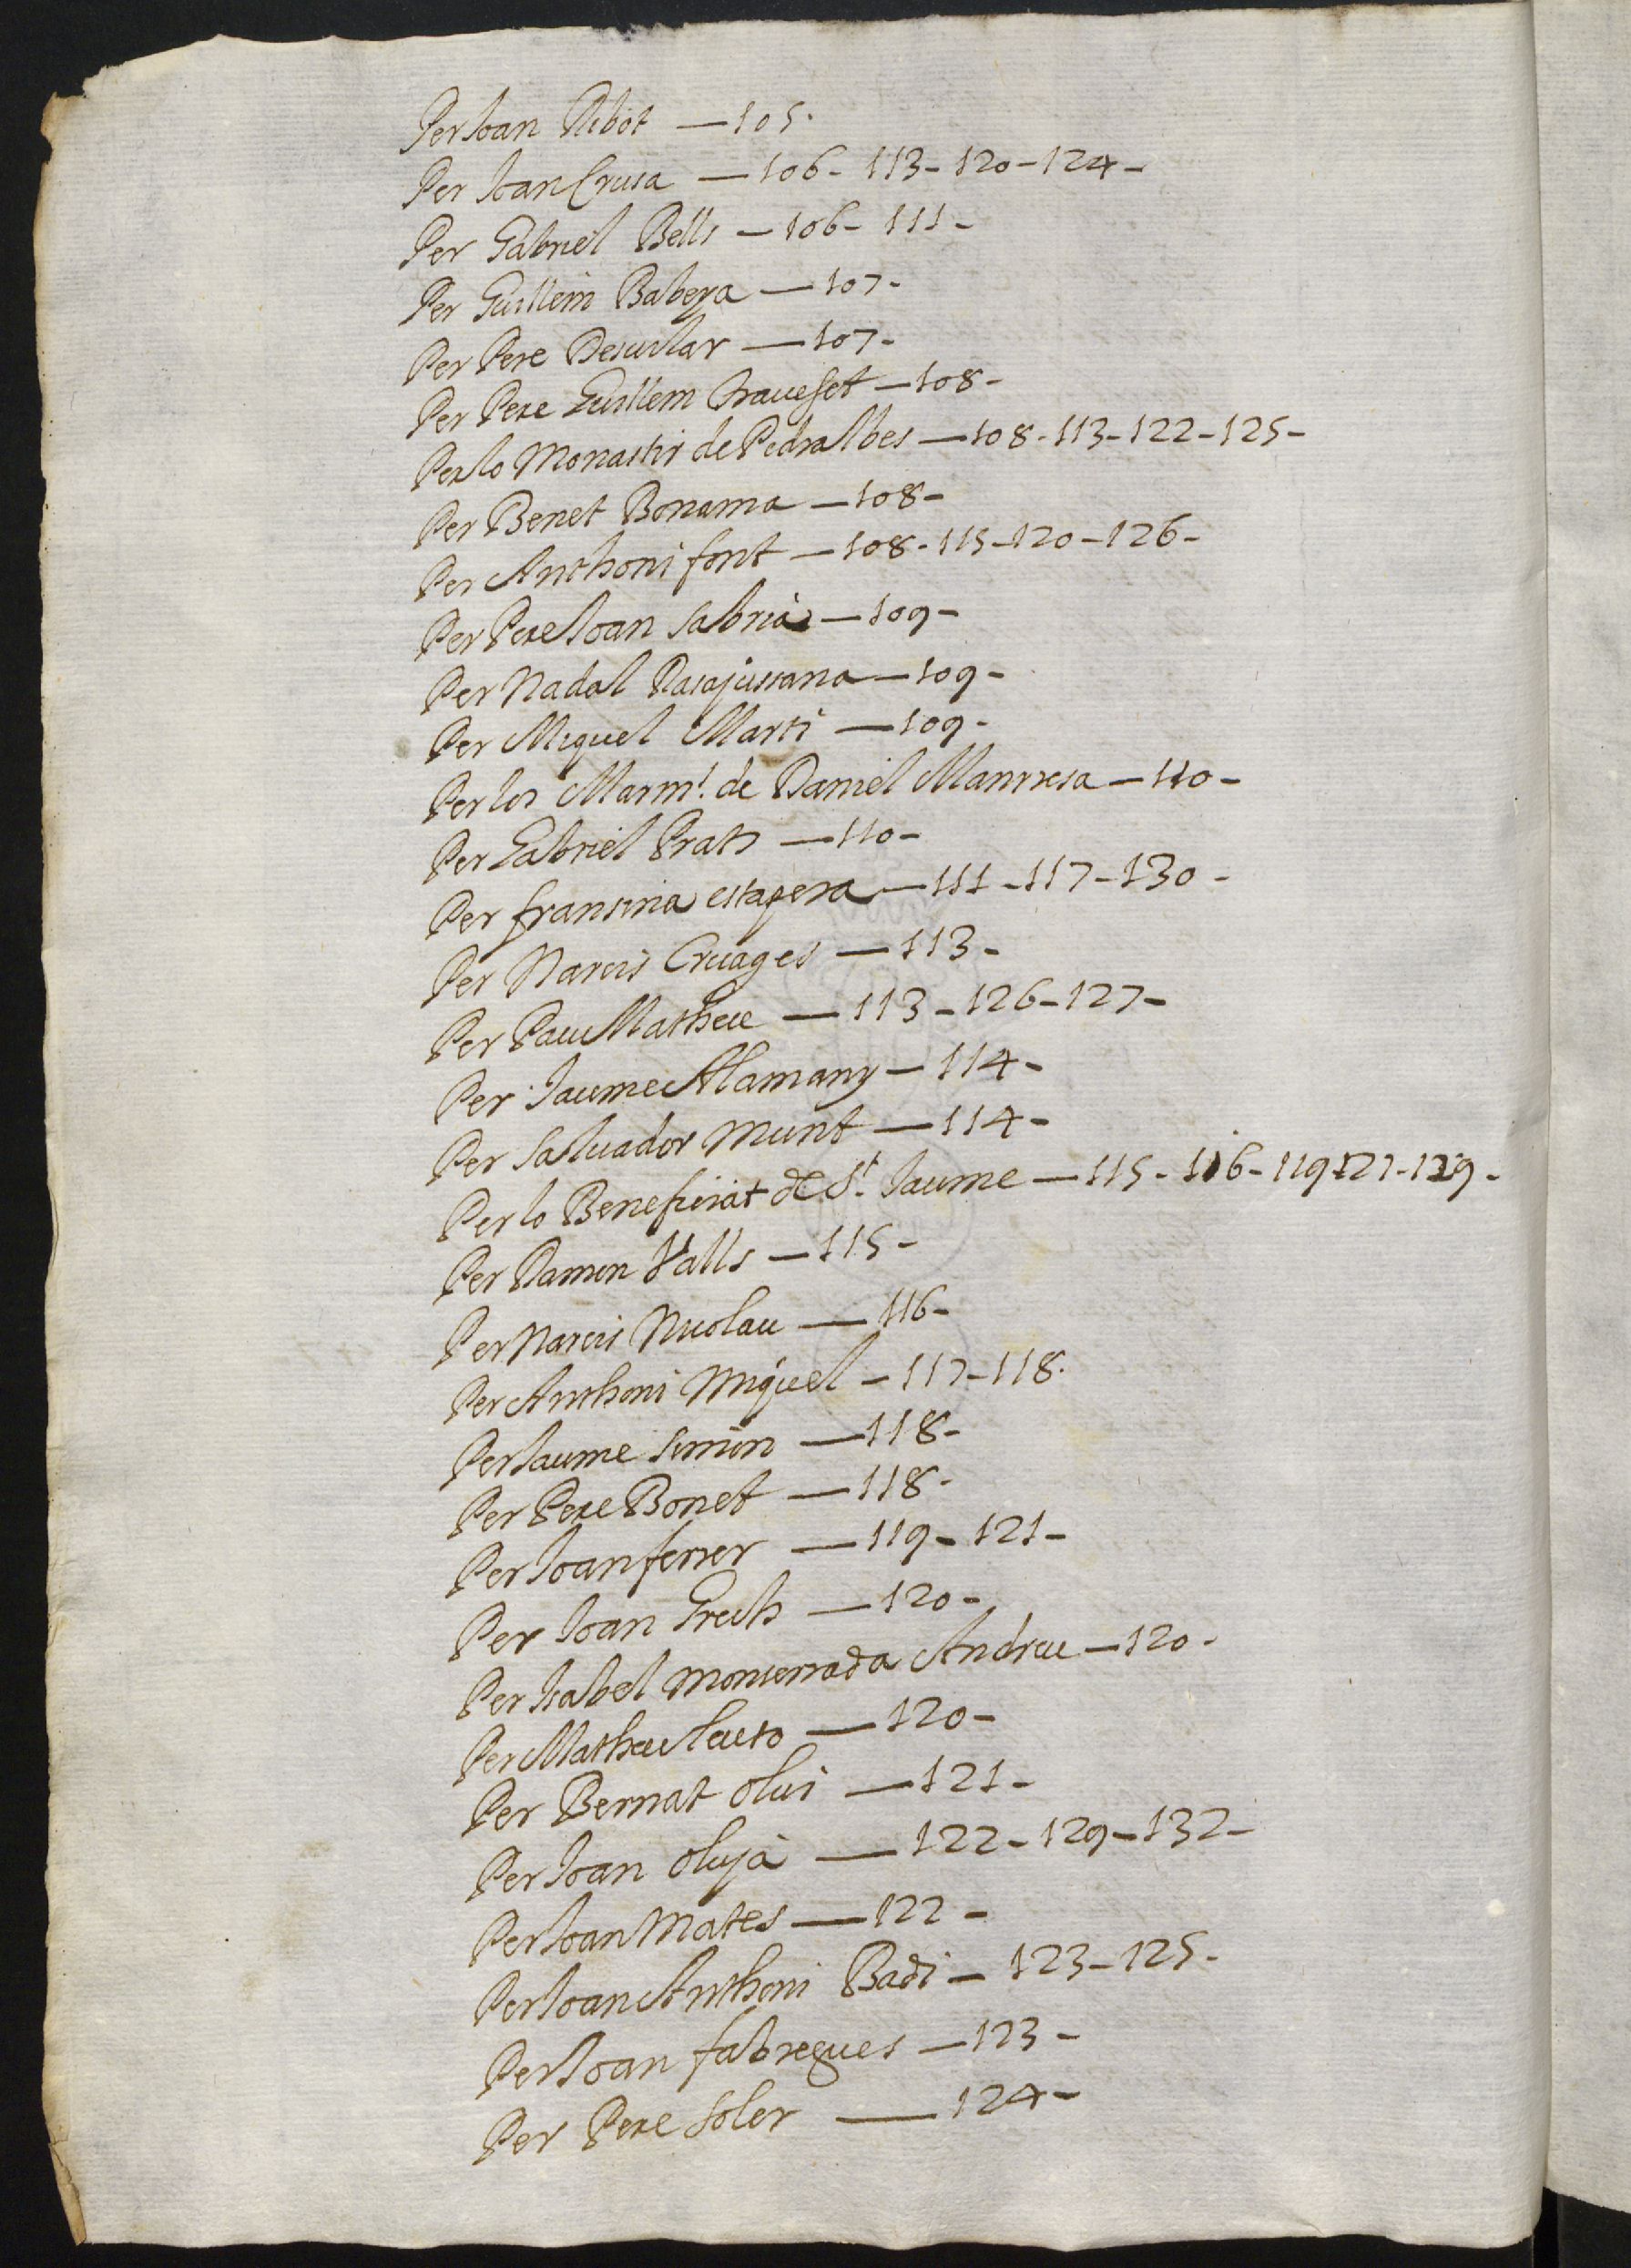 Per Joan Ribot — 105.
Per Joan Crusa — 106 - 113 - 120 - 124 -
Per Gabriel Bells — 106 - 111 -
Per Guillem Babeya — 107 -
Per Pere Descatlar — 107 -
Per Pere Guillem Traveset — 108 -
Per lo Monastir de Pedralbes — 108 - 113 - 122 - 125 -
Per Benet Bonama — 108 -
Per Anthoni font — 108 - 115 - 120 - 126 -
Per Pere Joan Sabria — 109 -
Per Nadal Rasajussana — 109 -
Per Miquel Marti — 109 -
Per los Marm.ˢ de Daniel Manrresa — 110 -
Per Gabriel Prats — 110 -
Per fransina estapera — 111 - 117 - 130 -
Per Narcis Cruages — 113 -
Per Pau Matheu — 113 - 126 - 127 -
Per Jaume Alamany — 114 -
Per Salvador Munt — 114 -
Per lo Beneficiat de St. Jaume — 115 - 116 - 119 - 121 - 129 -
Per Ramon Valls — 115 -
Per Narcis Nicolau — 116 -
Per Anthoni Miquel — 117 - 118.
Per Jaume Simon — 118 -
Per Pere Bonet — 118 -
Per Joan ferrer — 119 - 121 -
Per Joan Grech — 120 -
Per Isabel Monserrada Andreu — 120 -
Per Matheu — 120 -
Per Bernat Olui — 121 -
Per Joan Oluja — 122 - 129 - 132 -
Per Joan Mates — 122 -
Per Joan Anthoni Badi — 123 - 125 -
Per Joan fabregues — 123 -
Per Pere Soler — 124 -